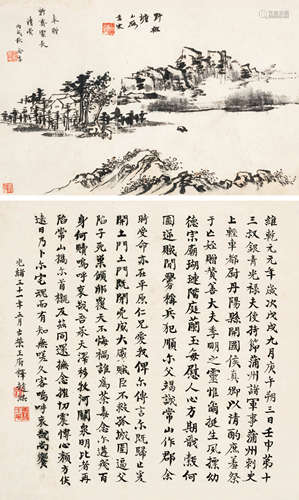 維乾元元年歲次戊戌九月庚午朔三日壬申第十
三叔銀青光祿夫使持節蒲州諸軍事蒲州刺史
上輕車都尉丹陽縣開國侯真卿以清酌庶羞祭
于亡姪贈贊善大夫季明之靈惟爾挺生夙標幼
德宗廟瑚璉階庭蘭玉每慰人心方期戩穀何
圖逆賊閒釁稱兵犯順尔父竭誠常山作郡余
時受命亦在平原仁兄愛我俾尔傳言尔既歸止爰
開土門土門既開兇威大蹙賊臣擁眾孤城圍逼父
陷子死巢傾卵覆天不悔禍誰為荼毒念尔遘殘百
身何贖嗚呼哀哉吾承天澤移牧河關泉明比者再
陷常山攜尔首櫬及茲同還撫念摧切震悼心顏方俟
遠日乃卜尔宅魂而有知無嗟久客嗚呼哀哉尚饗
光緒三十一年五月古榮王府